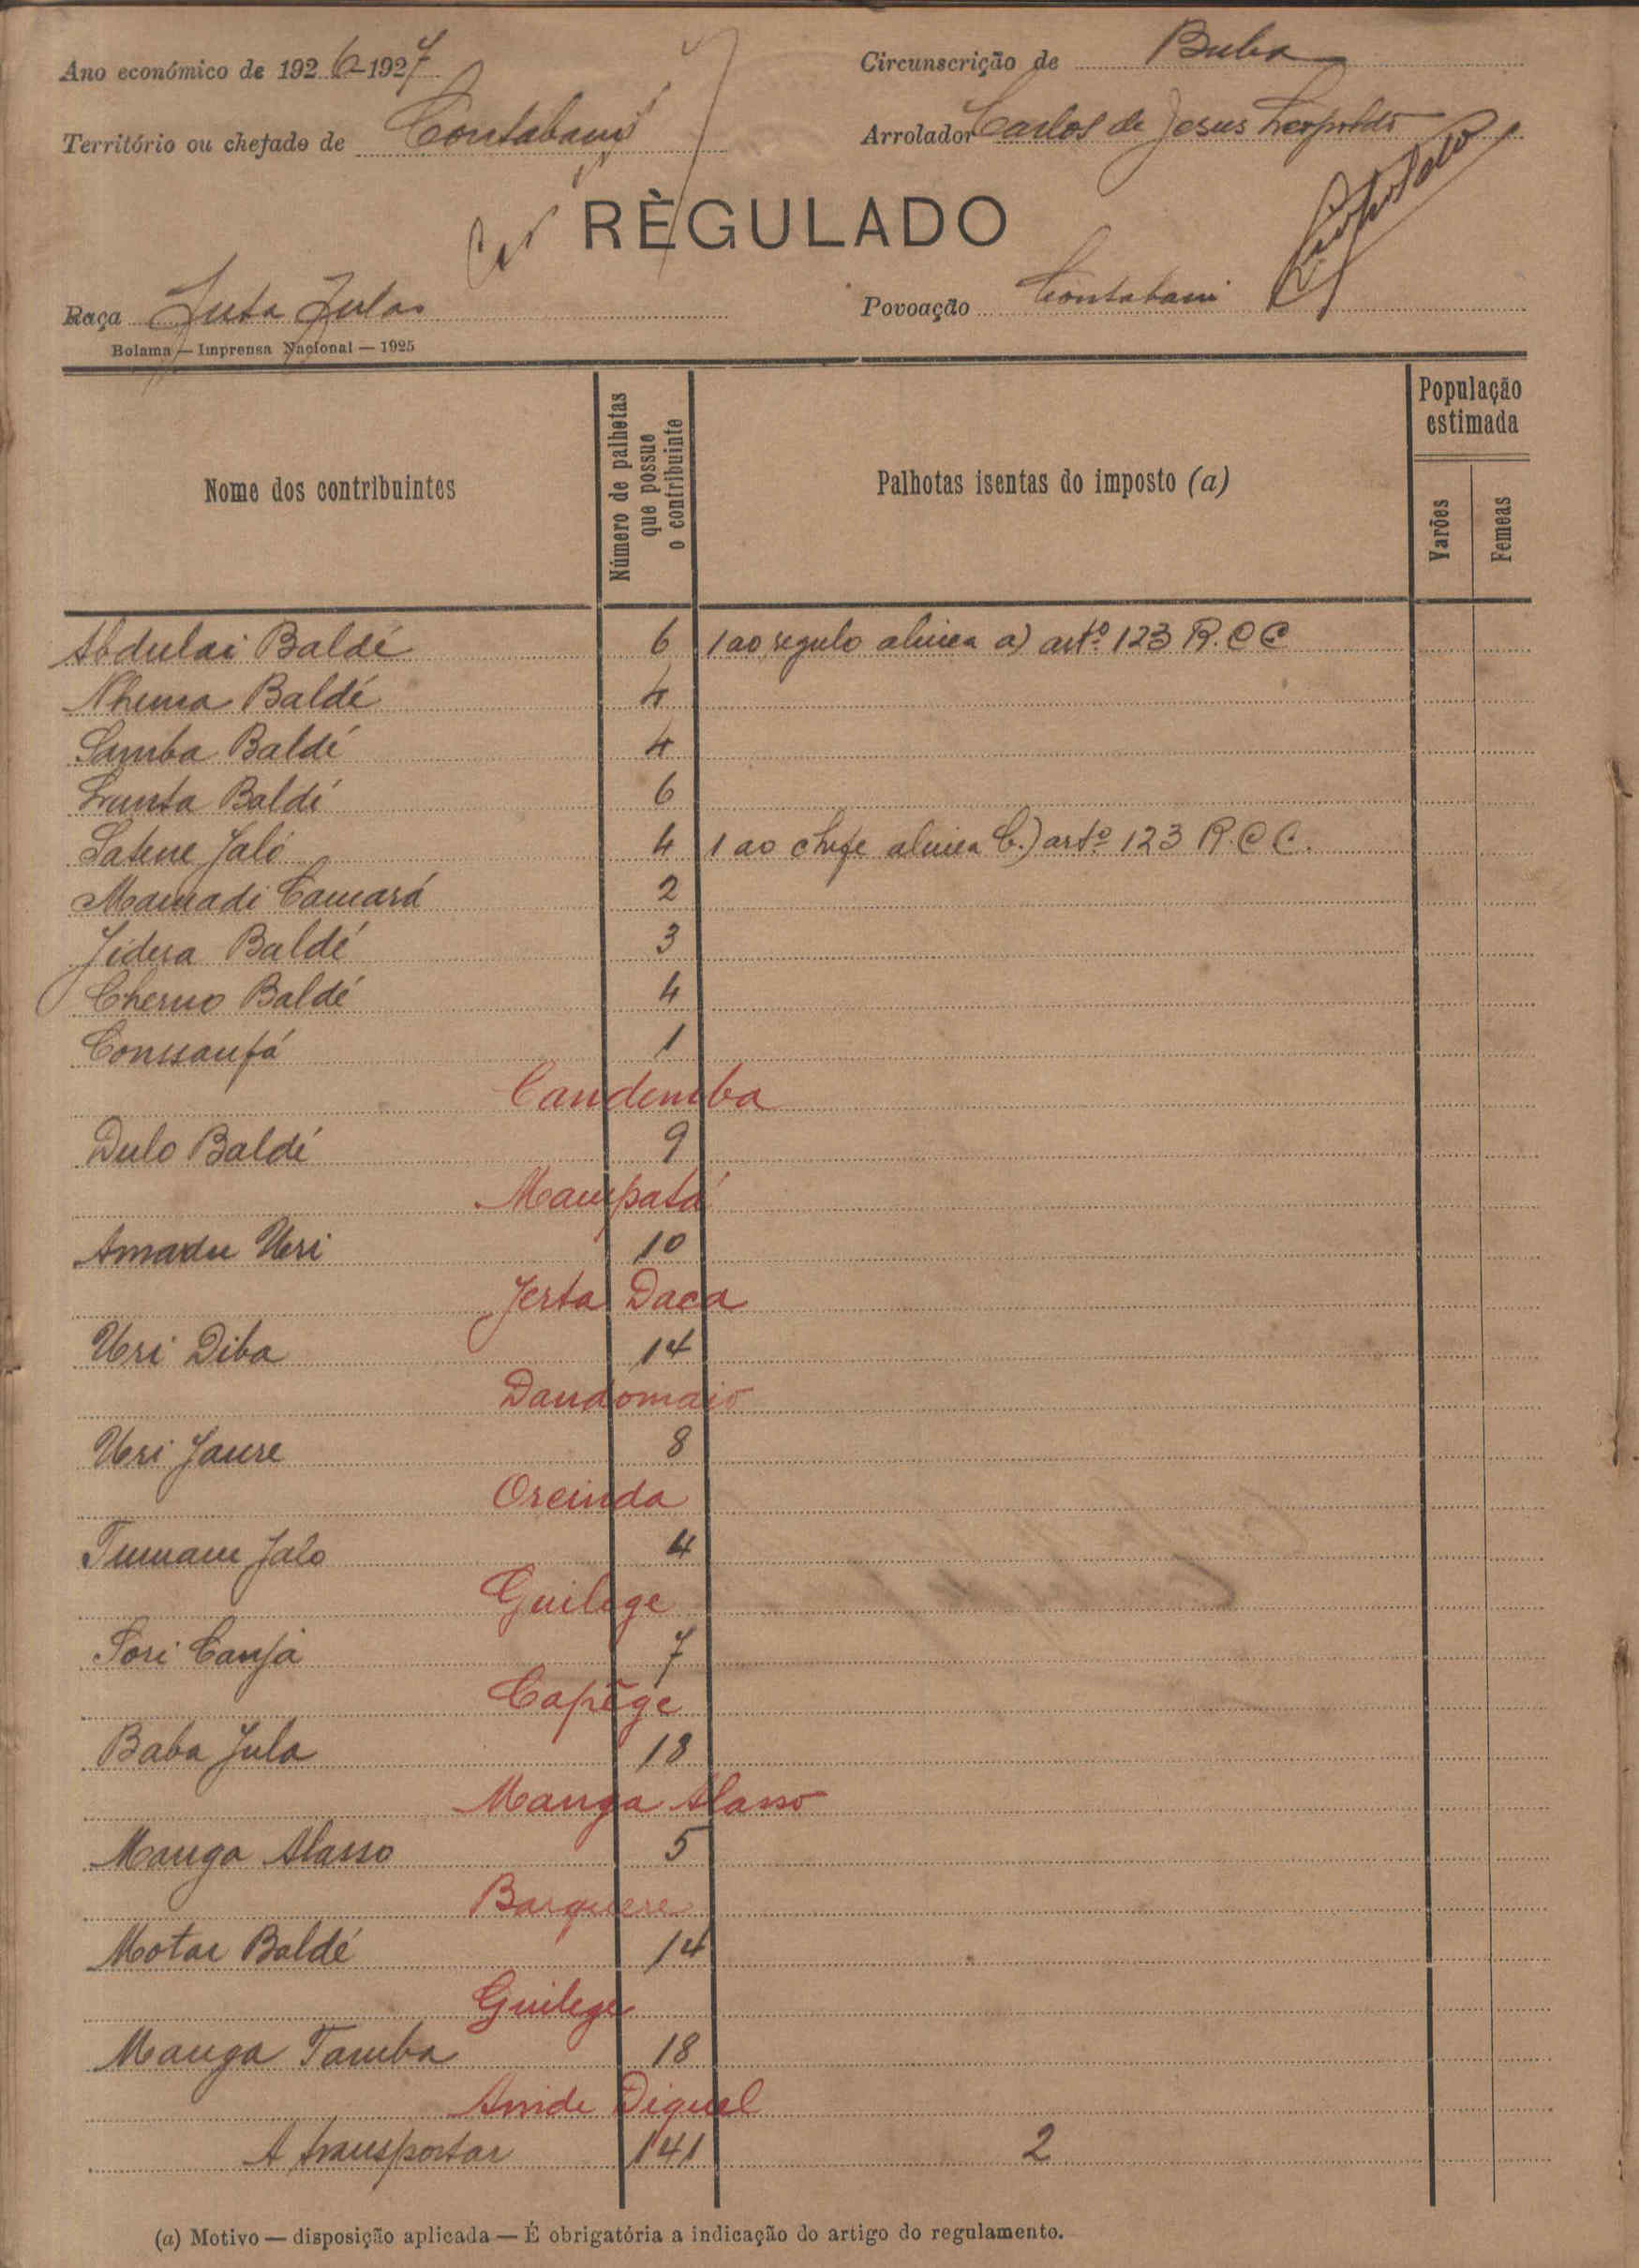 Ano económico de 1926-1927
Circunscrição de Buba
Território ou chefado de Contabani
Arrolador Carlos de Jesus Leopoldo
RÈGULADO
Raça Futa Fulas
Povoação Contabani
Bolama — Imprensa Nacional — 1925
Nome dos contribuintes
Número de palhetas
que possue
o contribuinte
Palhotas isentas do imposto (a)
População
estimada
Varões
Femeas
Abdulai Baldé 6 1 ao regulo alinea a) artº 123 R.C C
Nhema Baldé 4
Samba Baldé 4
Baldé 6
Satene Jaló 4 1 ao chefe alinea b.) artº 123 R.C C.
Mamadi Camará 2
Baldé 3
Cherno Baldé 4
Conssanfá 1
Candemba
Dulo Baldé 9
Mampatá
Amadu Uri 10
Jerta Daca
Uri Diba 14
Dandomaio
Uri Jaure 8
Oreinda
Jalo 4
Guilege
Sori Canja 7
Capêge
Baba Jula 18
Manga Alasso
Manga Alasso 5
Barquere
Motar Baldé 14
Guilege
Manga Tamba 18
Amide Diguel
A transportar 141 2
(a) Motivo — disposição aplicada — É obrigatória a indicação do artigo do regulamento.